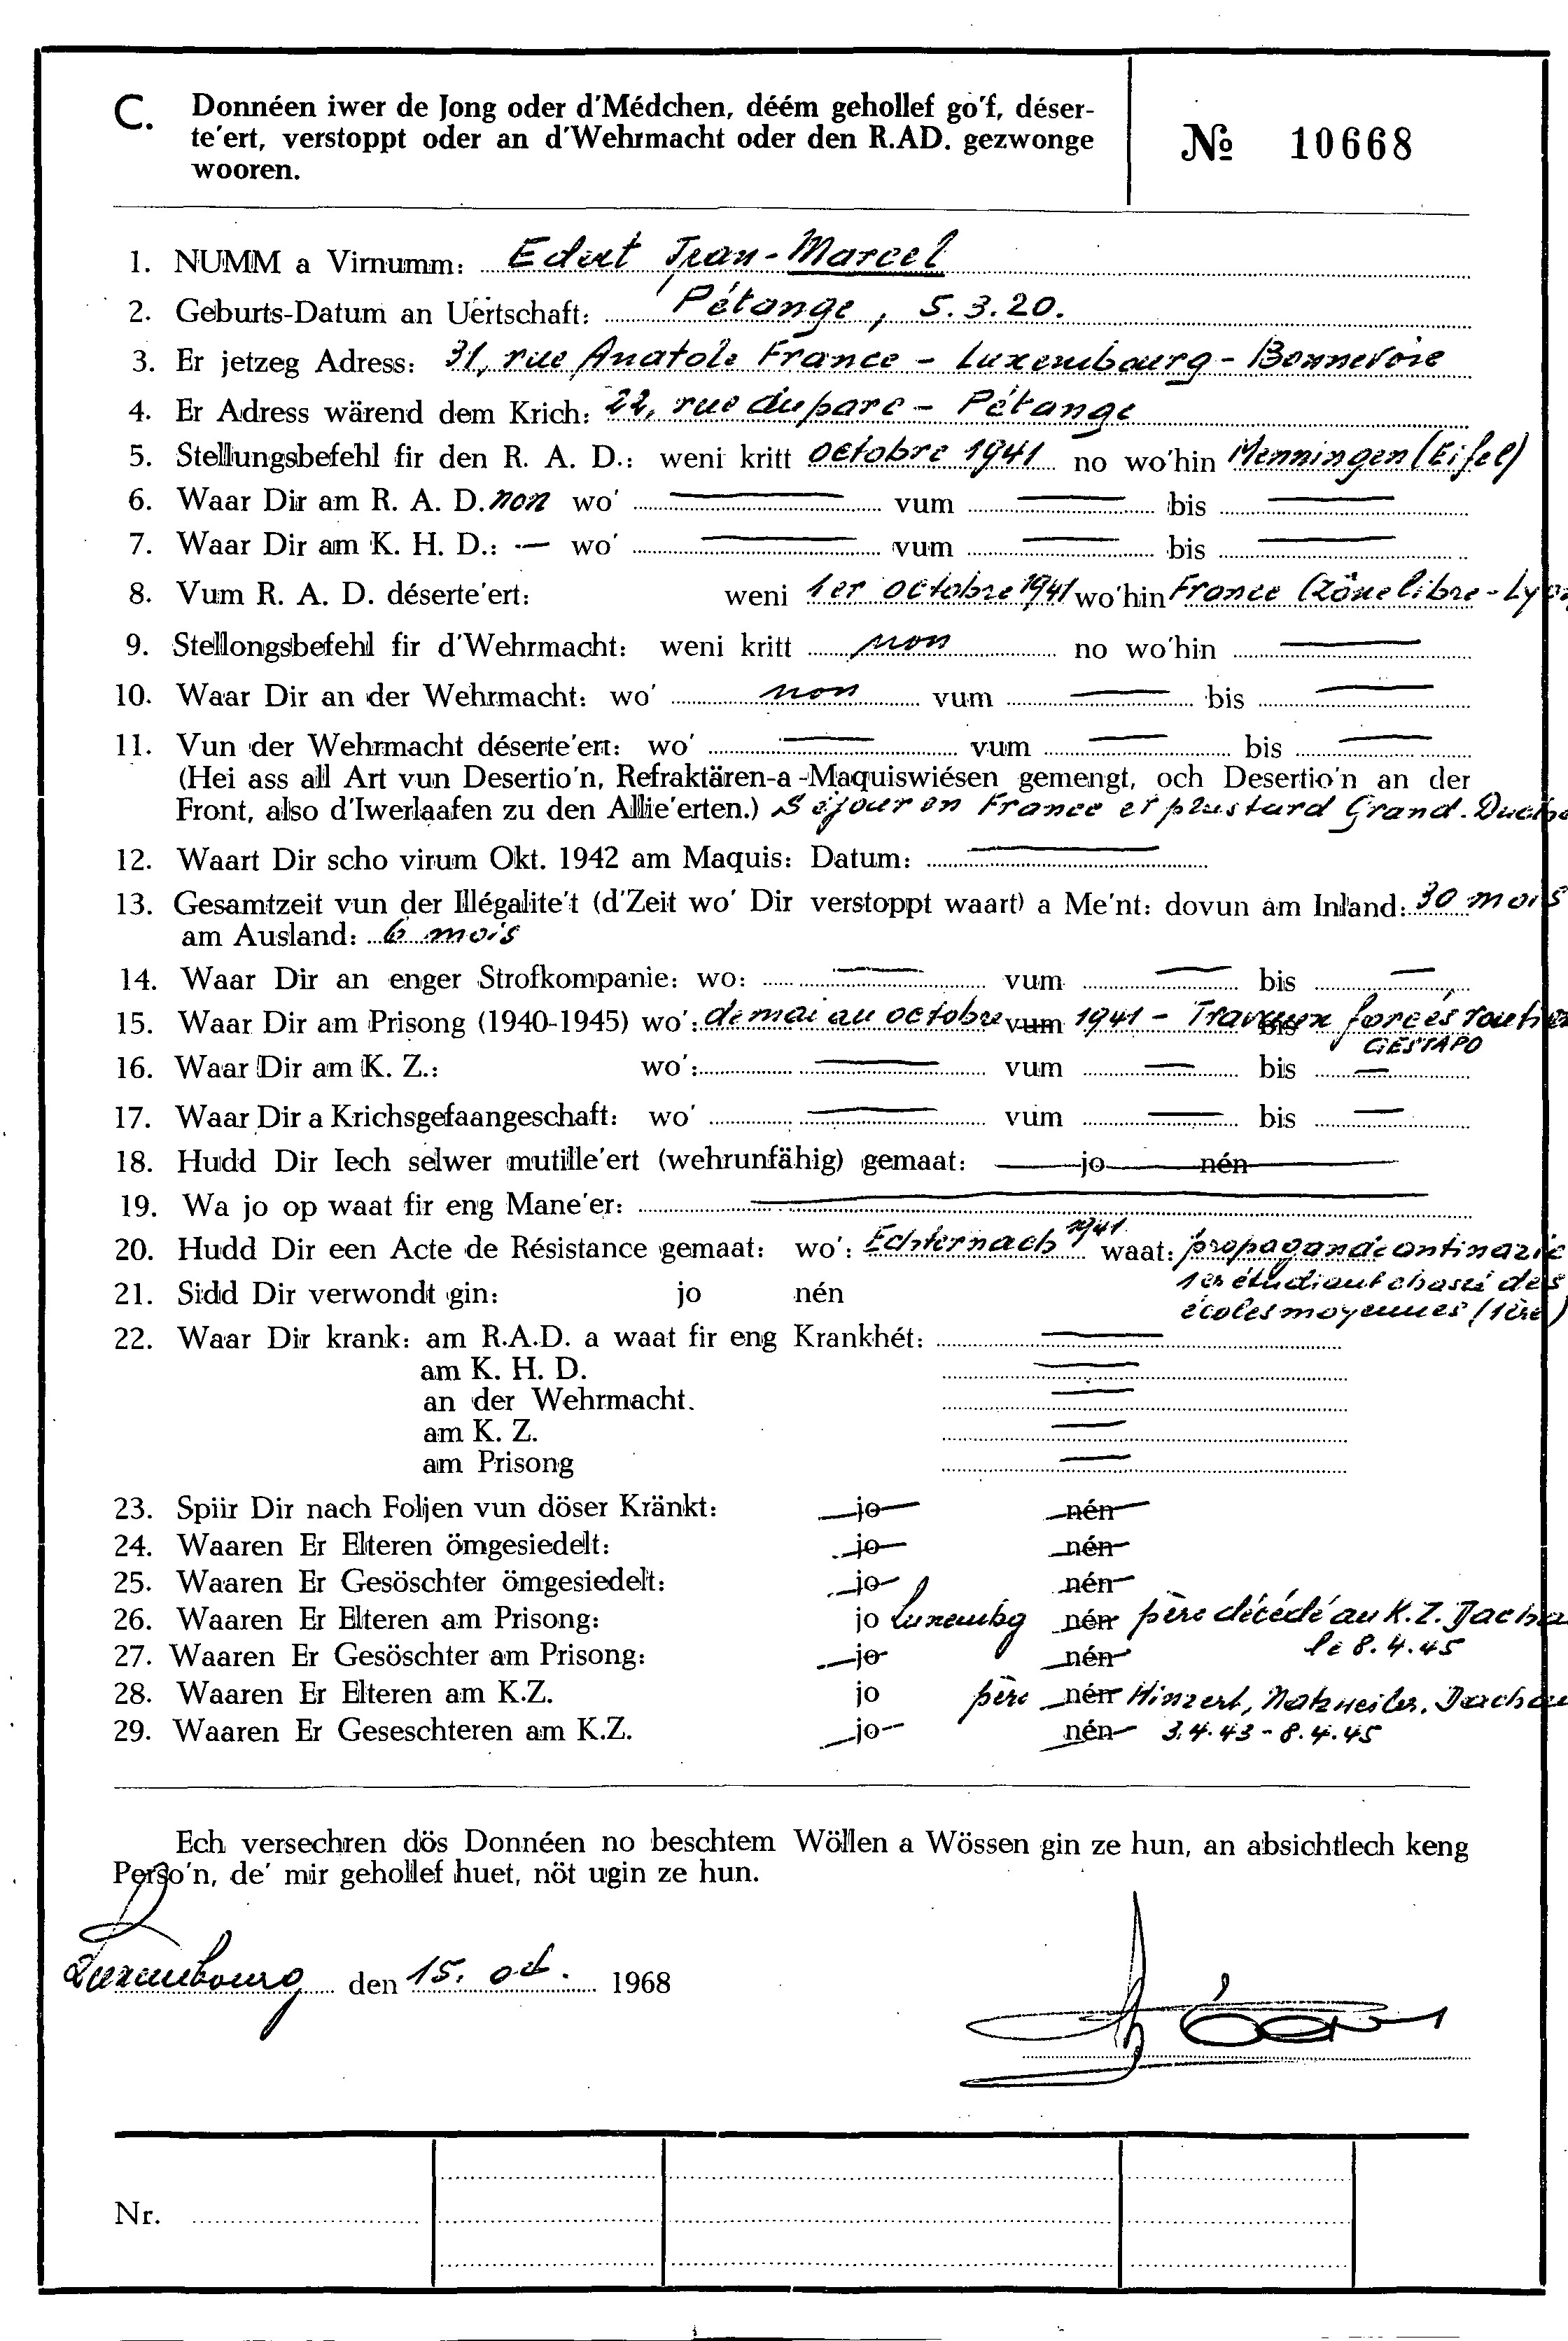 C. Donnéen iwer de Jong oder d'Médchen, déém gehollef go'f, déser-
te'ert, verstoppt oder an d'Wehrmacht oder den R.AD. gezwonge
wooren.
№ 10668
1. NUMM a Virnumm: Jean-Marcel
2. Geburts-Datum an Uertschaft: Pétange, 5.3.20.
3. Er jetzeg Adress: 31, rue Anatole France - Luxembourg - Bonnevoie
4. Er Adress wärend dem Krich: 22, rue du parc - Pétange
5. Stellungsbefehl fir den R. A. D.: weni kritt octobre 1941 no wo'hin Menningen (Eifel)
6. Waar Dir am R. A. D. non wo' — vum — bis —
7. Waar Dir am K. H. D.: — wo' — vum — bis —
8. Vum R. A. D. déserte'ert: weni 1er octobre 1941 wo'hin France (zône libre - Lyon
9. Stellongsbefehl fir d'Wehrmacht: weni kritt non no wo'hin —
10. Waar Dir an der Wehrmacht: wo' non vum — bis —
11. Vun der Wehrmacht déserte'ert: wo' — vum — bis —
(Hei ass all Art vun Desertio'n, Refraktären-a-Maquiswiésen gemengt, och Desertio'n an der
Front, also d'Iwerlaafen zu den Allie'erten.) Séjour en France et plus tard Grand-Duché
12. Waart Dir scho virum Okt. 1942 am Maquis: Datum: —
13. Gesamtzeit vun der Illégalite't (d'Zeit wo' Dir verstoppt waart) a Me'nt: dovun am Inland: 30 mois
am Ausland: 6 mois
14. Waar Dir an enger Strofkompanie: wo: — vum — bis —
15. Waar Dir am Prisong (1940-1945) wo': de mai au octobre vum 1941 - Travaux bis forcés
GESTAPO
16. Waar Dir am K. Z.: wo': — vum — bis —
17. Waar Dir a Krichsgefaangeschaft: wo' — vum — bis —
18. Hudd Dir Iech selwer mutille'ert (wehrunfähig) gemaat: jo nén
19. Wa jo op waat fir eng Mane'er: —
20. Hudd Dir een Acte de Résistance gemaat: wo': Echternach 1941 waat: propagande antinazie
21. Sidd Dir verwondt gin: jo nén 1er étudiant chassé des
écoles moyennes (1ère)
22. Waar Dir krank: am R.A.D. a waat fir eng Krankhét: —
am K. H. D. —
an der Wehrmacht. —
am K. Z. —
am Prisong —
23. Spiir Dir nach Foljen vun döser Kränkt: jo nén
24. Waaren Er Elteren ömgesiedelt: jo nén
25. Waaren Er Gesöschter ömgesiedelt: jo nén
26. Waaren Er Elteren am Prisong: jo Luxembg nén père décédé au K.Z. Dachau
le 8.4.45
27. Waaren Er Gesöschter am Prisong: jo nén
28. Waaren Er Elteren am K.Z. jo père nén Hinzert, Natzweiler, Dachau
29. Waaren Er Geseschteren am K.Z. jo nén 3.4.43 - 8.4.45
Ech versechren dös Donnéen no beschtem Wöllen a Wössen gin ze hun, an absichtlech keng
Perso'n, de' mir gehollef huet, nöt ugin ze hun.
Luxembourg den 15. oct. 1968
Nr.